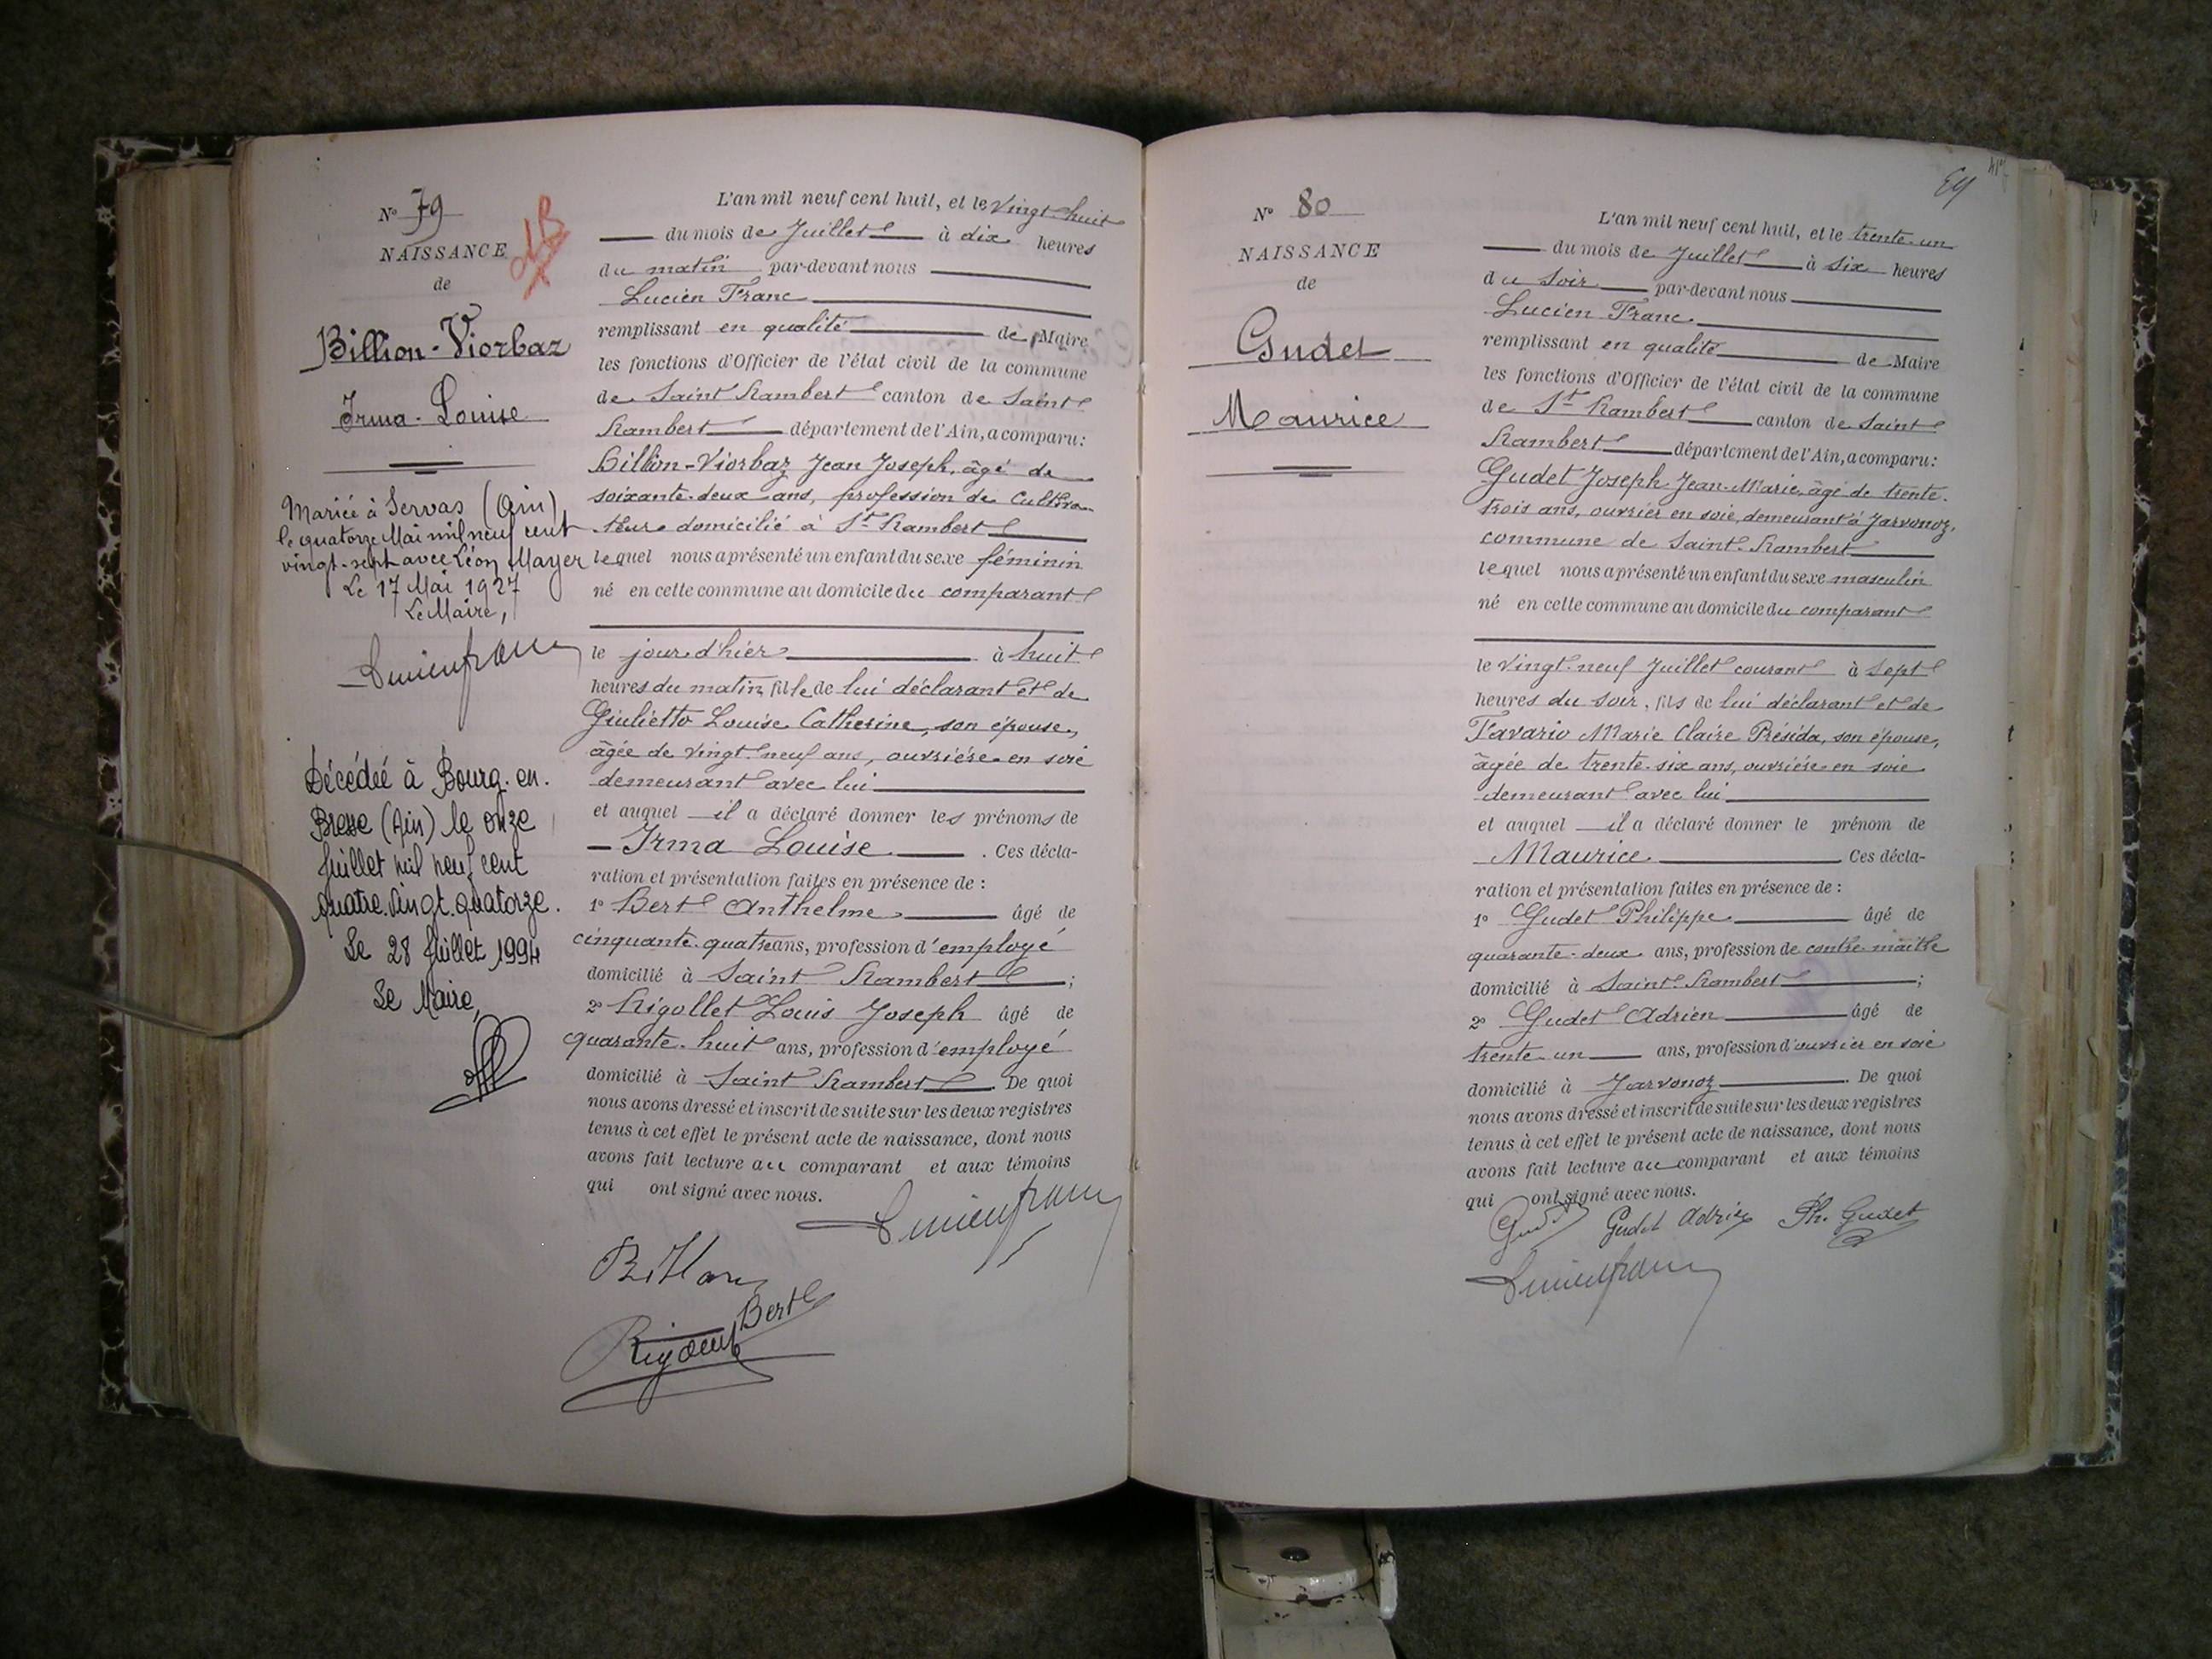 N° 79
NAISSANCE
de
Billion-Viorbaz
Irma-Louise
Mariée à Servas (Ain)
le quatorze Mai mil neuf cent
vingt-sept avec Léon Mayer
Le 17 Mai 1927
Le Maire,
Lucien franc
Décédée à Bourg-en-
Bresse (Ain) le onze
Juillet mil neuf cent
quatre.vingt.quatorze.
Le 28 Juillet 1994
Le Maire,
L'an mil neuf cent huit, et le vingt-huit
du mois de Juillet à dix heures
du matin par-devant nous
Lucien Franc
remplissant en qualité de Maire
les fonctions d'Officier de l'état civil de la commune
de Saint Rambert canton de Saint
Rambert département de l'Ain, a comparu:
Billion-Viorbaz Jean Joseph, âgé de
soixante-deux ans, profession de cultiva-
teur domicilié à St Rambert
lequel nous a présenté un enfant du sexe féminin
né en cette commune au domicile du comparant
le jour d'hier à huit
heures du matin, fille de lui déclarant et de
Giulietto Louise Catherine, son épouse,
âgée de vingt-neuf ans, ouvrière en soie
demeurant avec lui
et auquel il a déclaré donner les prénoms de
Irma Louise. Ces décla-
ration et présentation faites en présence de :
1° Bert Anthelme âgé de
cinquante-quatre ans, profession d'employé
domicilié à Saint Rambert ;
2° Rigollet Louis Joseph âgé de
quarante-huit ans, profession d'employé
domicilié à Saint Rambert. De quoi
nous avons dressé et inscrit de suite sur les deux registres
tenus à cet effet le présent acte de naissance, dont nous
avons fait lecture au comparant et aux témoins
qui ont signé avec nous.
Lucien franc
Billion
Bert
N° 80
NAISSANCE
de
Gudet
Maurice
L'an mil neuf cent huit, et le trente-un
du mois de Juillet à six heures
du soir par-devant nous
Lucien Franc
remplissant en qualité de Maire
les fonctions d'Officier de l'état civil de la commune
de St Rambert canton de Saint
Rambert département de l'Ain, a comparu:
Gudet Joseph Jean-Marie, âgé de trente-
trois ans, ouvrier en soie, demeurant à Javornoz,
commune de Saint-Rambert
lequel nous a présenté un enfant du sexe masculin
né en cette commune au domicile du comparant
le vingt-neuf Juillet courant à sept
heures du soir, fils de lui déclarant et de
Favario Marie Claire Présida, son épouse,
âgée de trente-six ans, ouvrière en soie
demeurant avec lui
et auquel il a déclaré donner le prénom de
Maurice. Ces décla-
ration et présentation faites en présence de :
1° Gudet Philippe âgé de
quarante-deux ans, profession de contre-maître
domicilié à Saint-Rambert ;
2° Gudet Adrien âgé de
trente-un ans, profession d'ouvrier en soie
domicilié à Javornoz. De quoi
nous avons dressé et inscrit de suite sur les deux registres
tenus à cet effet le présent acte de naissance, dont nous
avons fait lecture au comparant et aux témoins
qui ont signé avec nous.
Gudet Adrien Ph. Gudet
Lucien franc